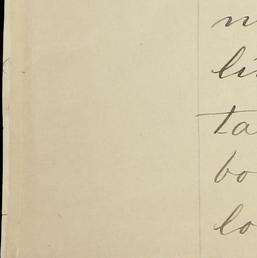 n
li
ta
bo
lo